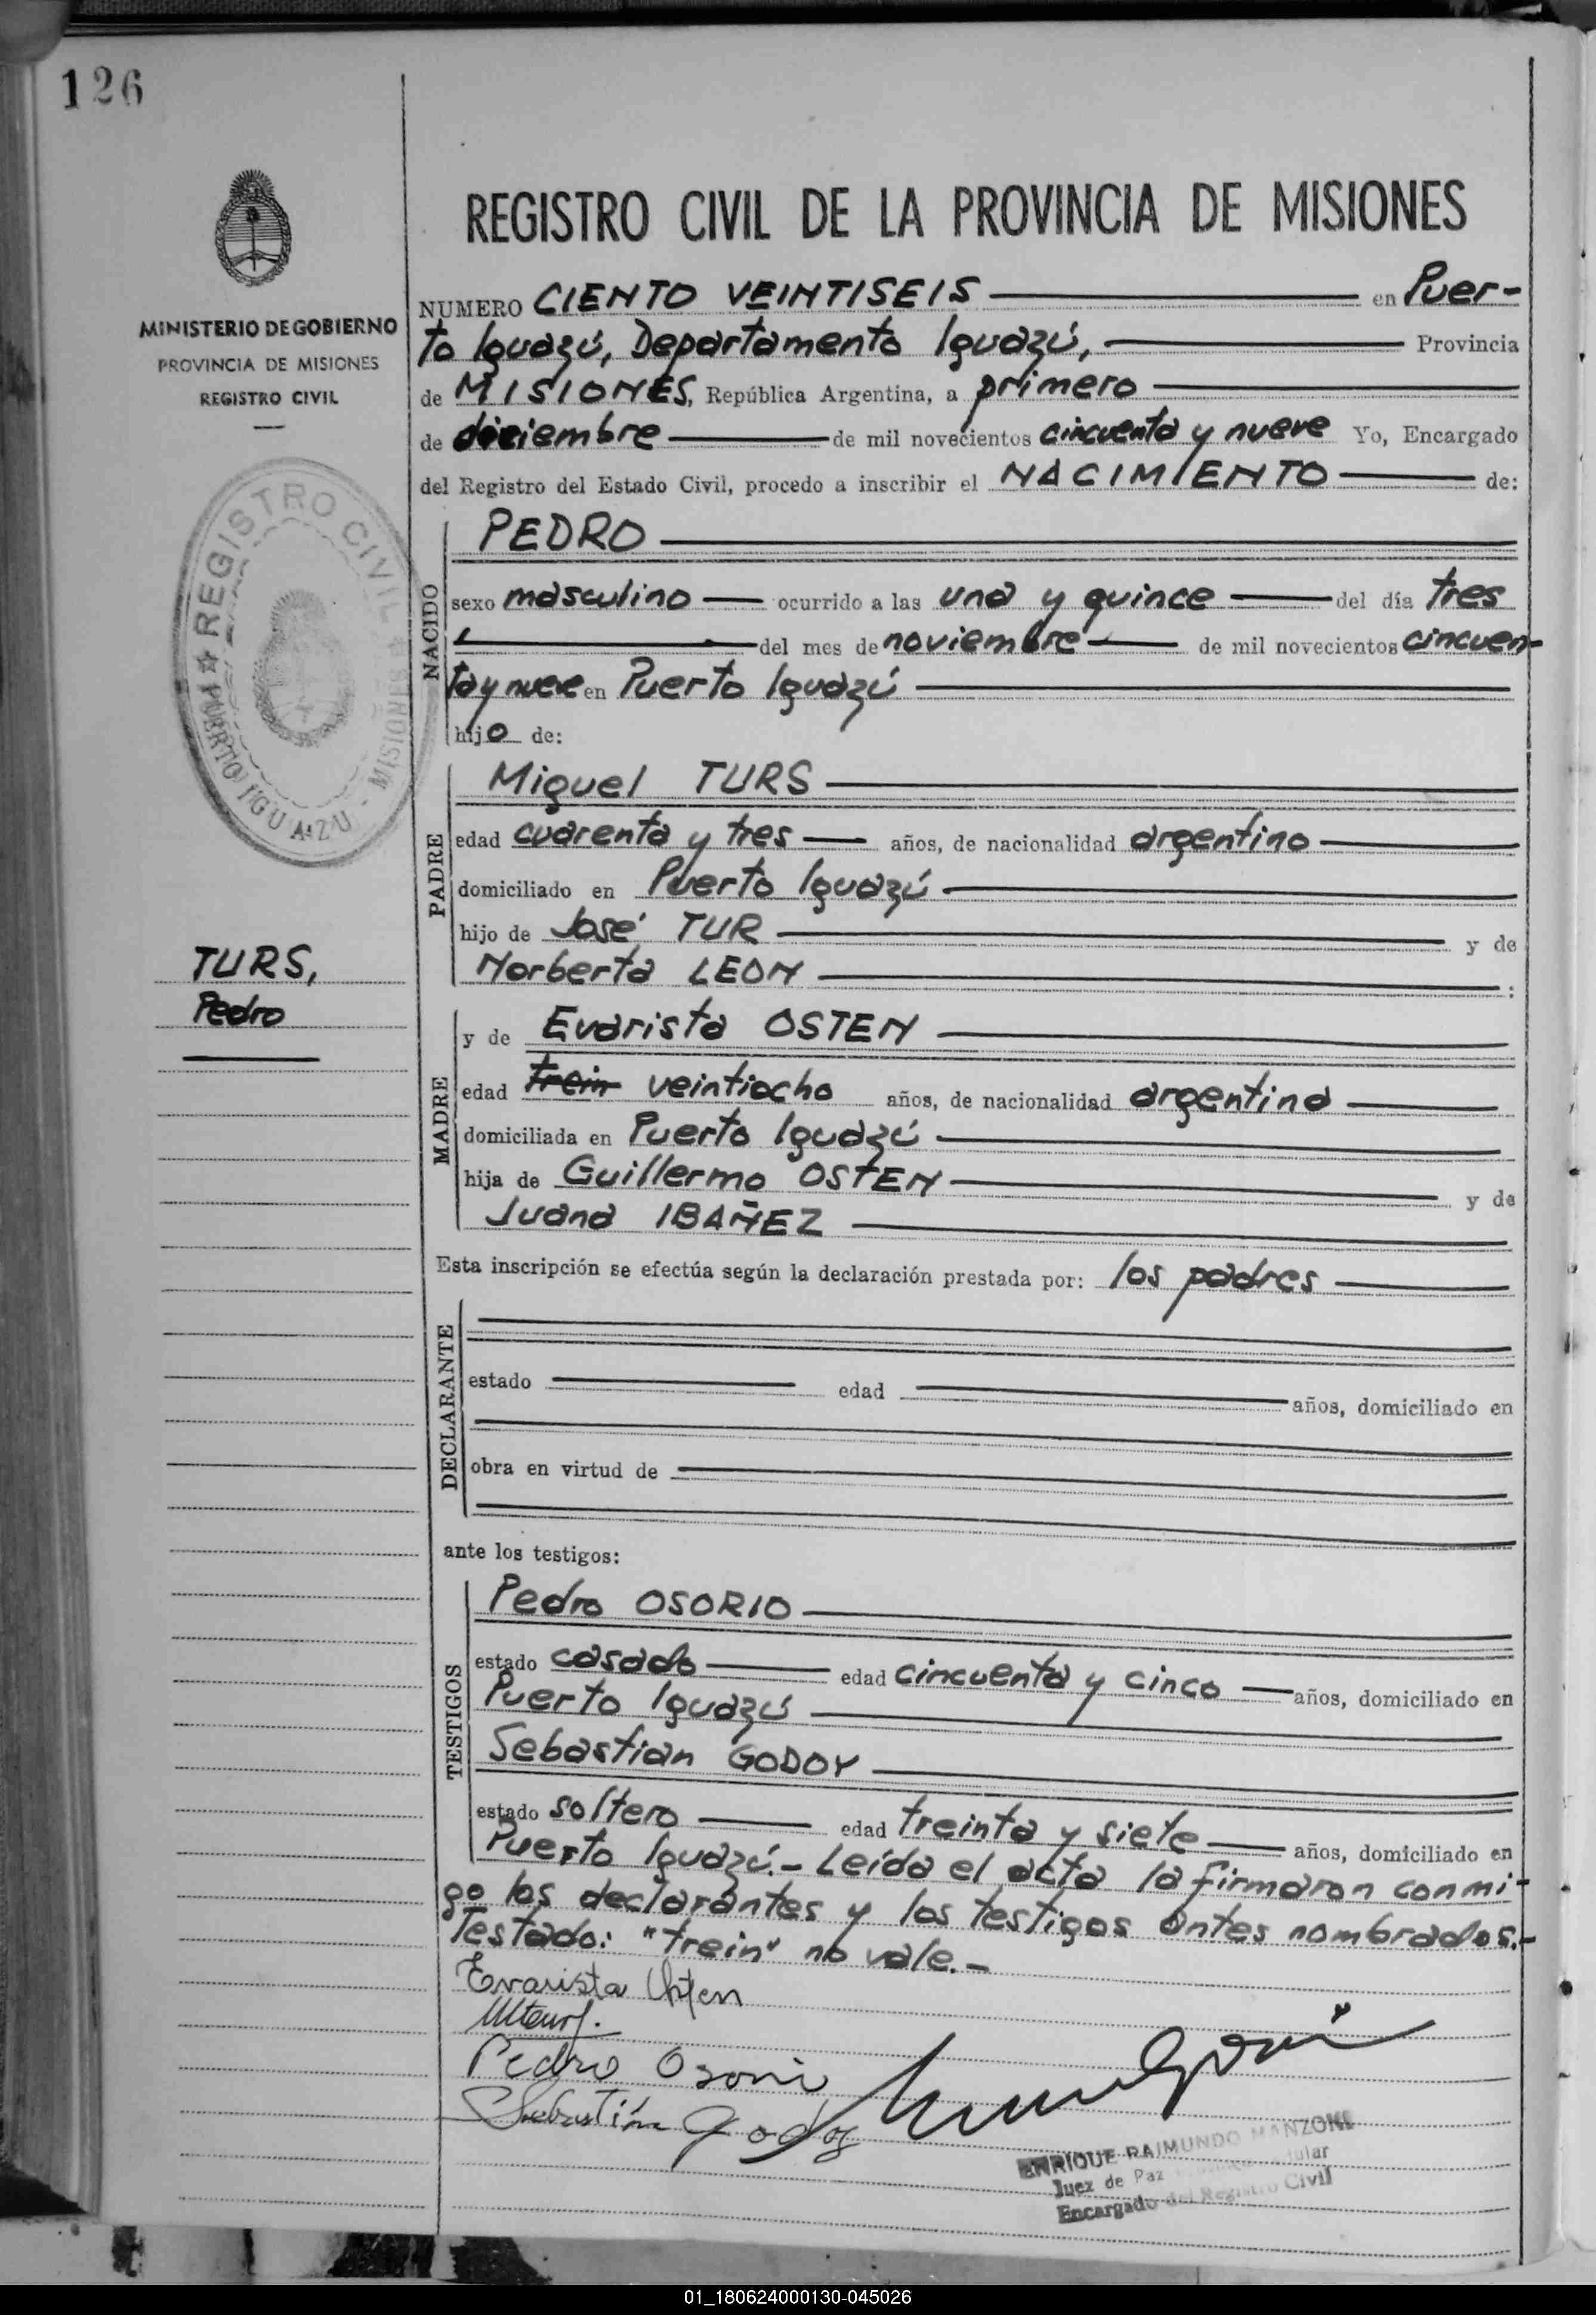 126
MINISTERIO DE GOBIERNO
PROVINCIA DE MISIONES
REGISTRO CIVIL
REGISTRO CIVIL DE LA PROVINCIA DE MISIONES
NUMERO CIENTO VEINTISEIS en Puer-
to Iguazú, Departamento Iguazú, Provincia
de MISIONES, República Argentina, a primero
de diciembre de mil novecientos cincuenta y nueve Yo, Encargado
del Registro del Estado Civil, procedo a inscribir el NACIMIENTO de:
NACIDO
PEDRO
sexo masculino ocurrido a las una y quince del día tres
del mes de noviembre de mil novecientos cincuen-
ta y nueve en Puerto Iguazú
hijo de:
★ REGISTRO CIVIL ★
PUERTO IGUAZU - MISIONES
PADRE
Miguel TURS
edad cuarenta y tres años, de nacionalidad argentino
domiciliado en Puerto Iguazú
hijo de José TUR y de
Norberta LEON :
TURS,
Pedro
MADRE
y de Evarista OSTEN
edad trein veintiocho años, de nacionalidad argentina
domiciliada en Puerto Iguazú
hija de Guillermo OSTEN y de
Juana IBAÑEZ
Esta inscripción se efectúa según la declaración prestada por: los padres
DECLARANTE
estado edad años, domiciliado en
obra en virtud de
ante los testigos:
TESTIGOS
Pedro OSORIO
estado casado edad cincuenta y cinco años, domiciliado en
Puerto Iguazú
Sebastian GODOY
estado soltero edad treinta y siete años, domiciliado en
Puerto Iguazú.- Leída el acta la firmaron conmi-
go los declarantes y los testigos antes nombrados.-
Testado: "trein" no vale.-
Evarista Osten
Pedro Osorio
Sebastián Godoy
ENRIQUE RAIMUNDO MANZONI
Juez de Paz Titular
Encargado del Registro Civil
01_180624000130-045026